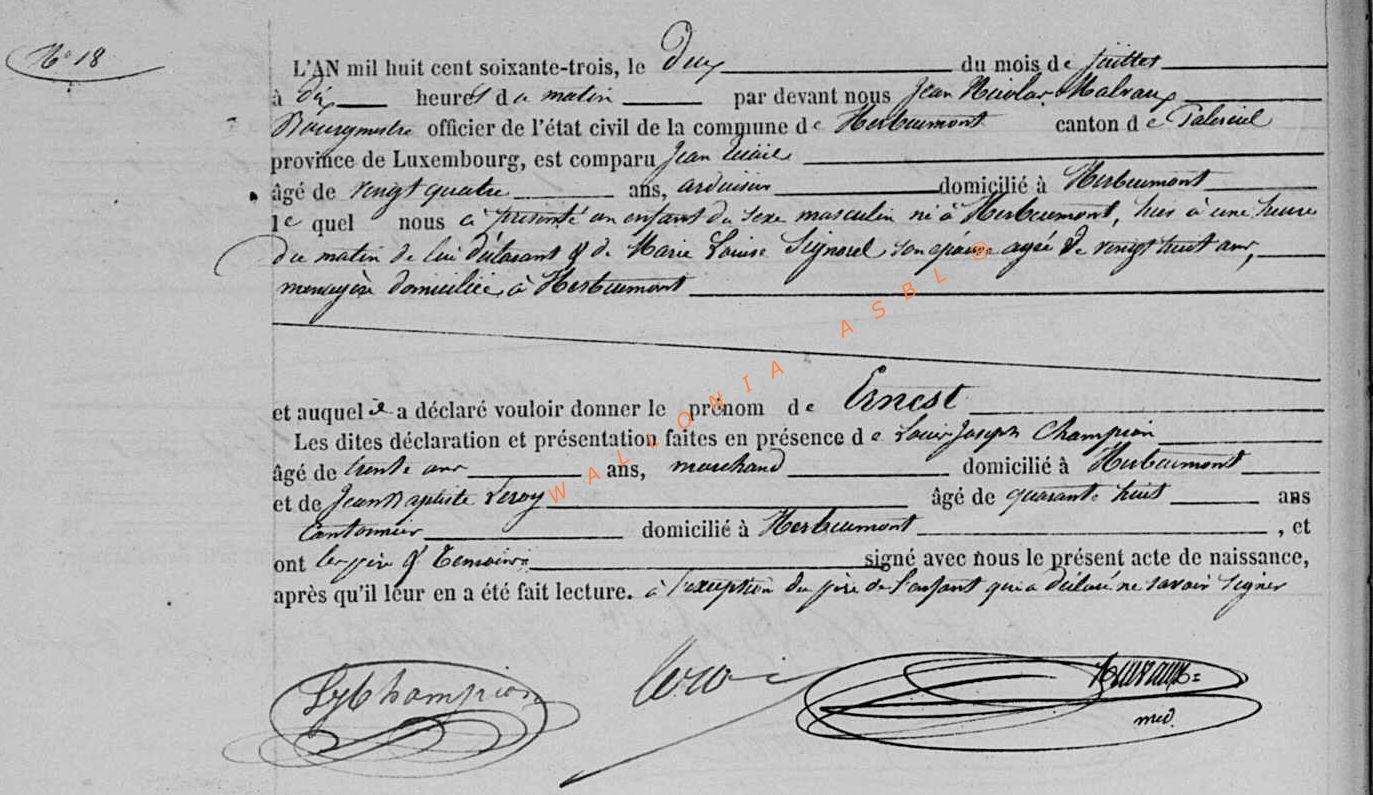 N° 18
L'AN mil huit cent soixante-trois, le Deux du mois de juillet
à dix heures du matin par devant nous Jean Nicolas Malvaux
Bourgmestre officier de l'état civil de la commune de Herbeumont canton de Paliseul
province de Luxembourg, est comparu Jean
âgé de vingt quatre ans, ardoisier domicilié à Herbeumont
lequel nous a présenté un enfant du sexe masculin né à Herbeumont, hier à une heure
du matin de lui déclarant & de Marie Louise Signorel son épouse agée de vingt huit ans,
menagère domiciliée à Herbeumont
et auquel il a déclaré vouloir donner le prénom de Ernest
Les dites déclaration et présentation faites en présence de Louis Joseph Champion
âgé de trente ans ans, marchand domicilié à Herbeumont
et de Jean Baptiste Leroy âgé de quarante huit ans
Cantonnier domicilié à Herbeumont , et
ont les père & temoins signé avec nous le présent acte de naissance,
après qu'il leur en a été fait lecture. à l'exception du père de l'enfant qui a déclaré ne savoir signer
LJChampion Leroi Malvaux
med.
WALLONIA ASBL ®